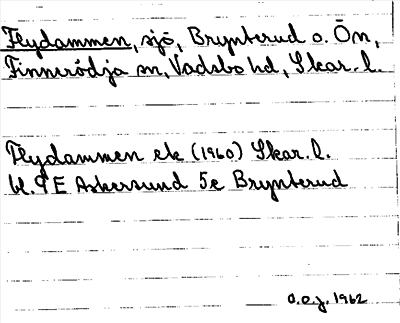 Flydammen, sjö, Brynterud o. Ön,
Finnerödja sn, Vadsbo hd, Skar. l.
Flydammen ek (1960) Skar. l.
bl. 9 E Askersund 5e Brynterud
O.e.j. 1962